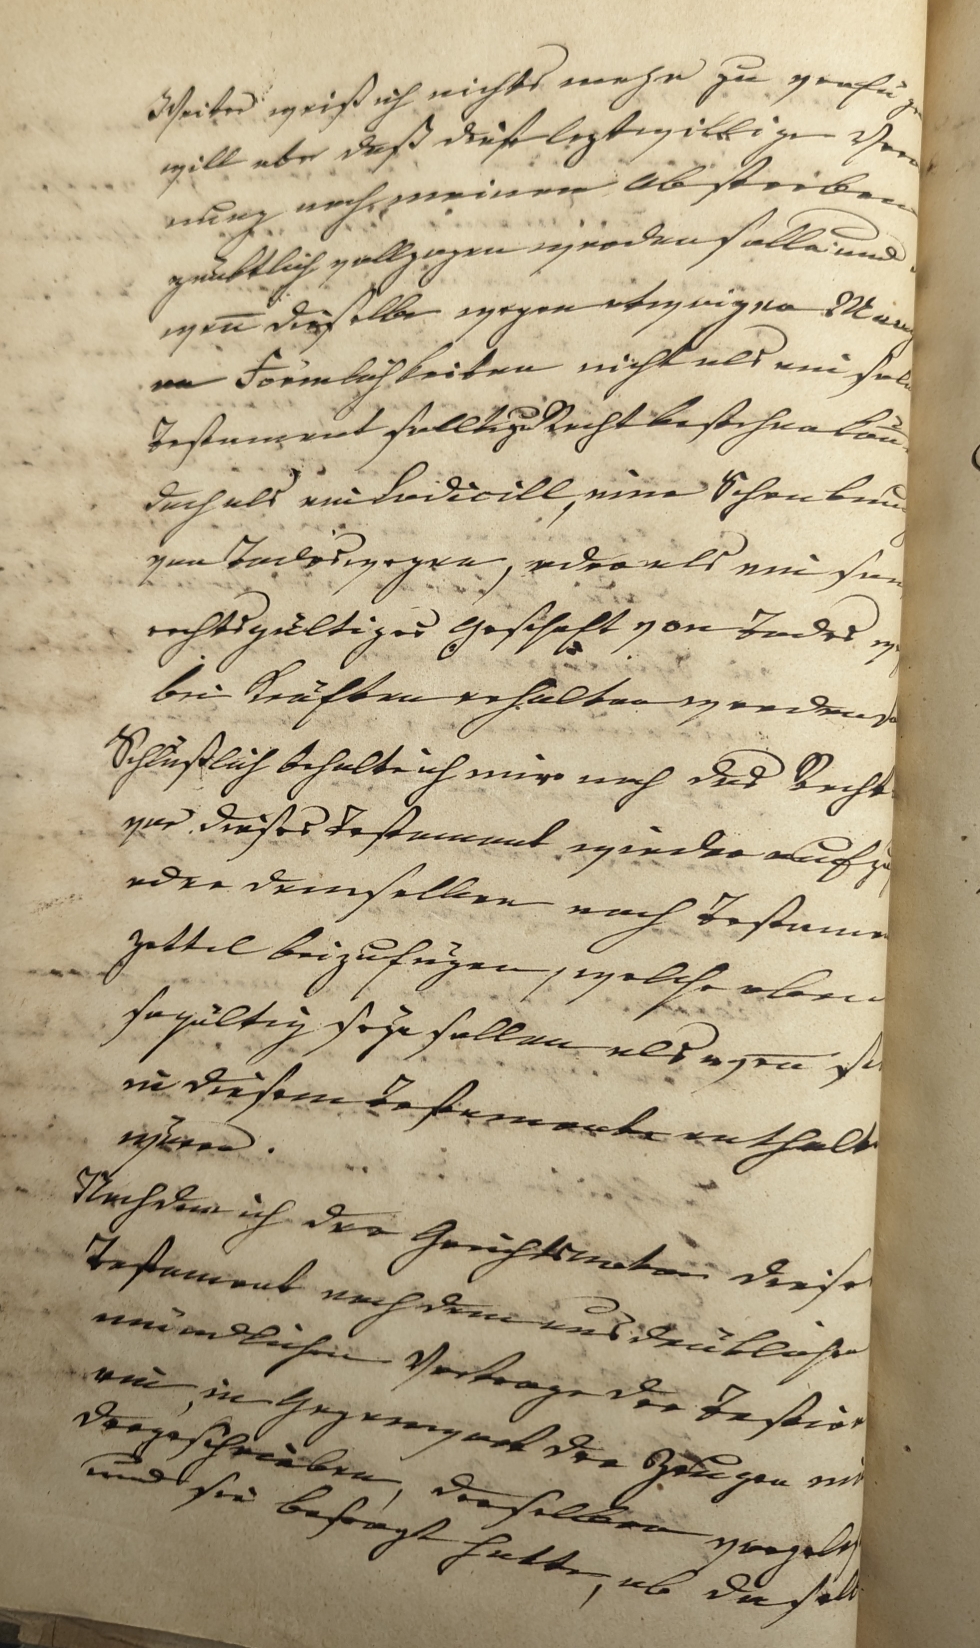 Weiter weiß ich nichts mehr zu verfüge
will aber daß diese leztwillige Veror
nung nach meinem Absterben
pünktlich vollzogen werden solle und
weñ dieselbe wegen etwaigen Mang
an Förmlichkeiten nicht als ein sol
Testament sollte zu Recht bestehen köñ
doch als ein Codicill, eine Schenkung
von Todeswegen, oder als ein son
rechtsgültiges Geschäft von Todes we
bei Kräften erhalten werden so
Schlüßlich behalte ich mir noch das Recht
vor dieses Testament wieder aufzu
oder demselben noch Testamen
zettel beizufügen, welche eben
so gültig seÿn sollen als weñ sie
in diesem Testamente enthalt
wären.
Nachdem ich der Gerichtsnotar dieses
Testament nach dem ausdrüklichen
mündlichen Vortrage der Testier
in, in Gegenwart der Zeugen nie
dergeschrieben, derselben vorgeles
und sie befragt hatte, ob dasselb